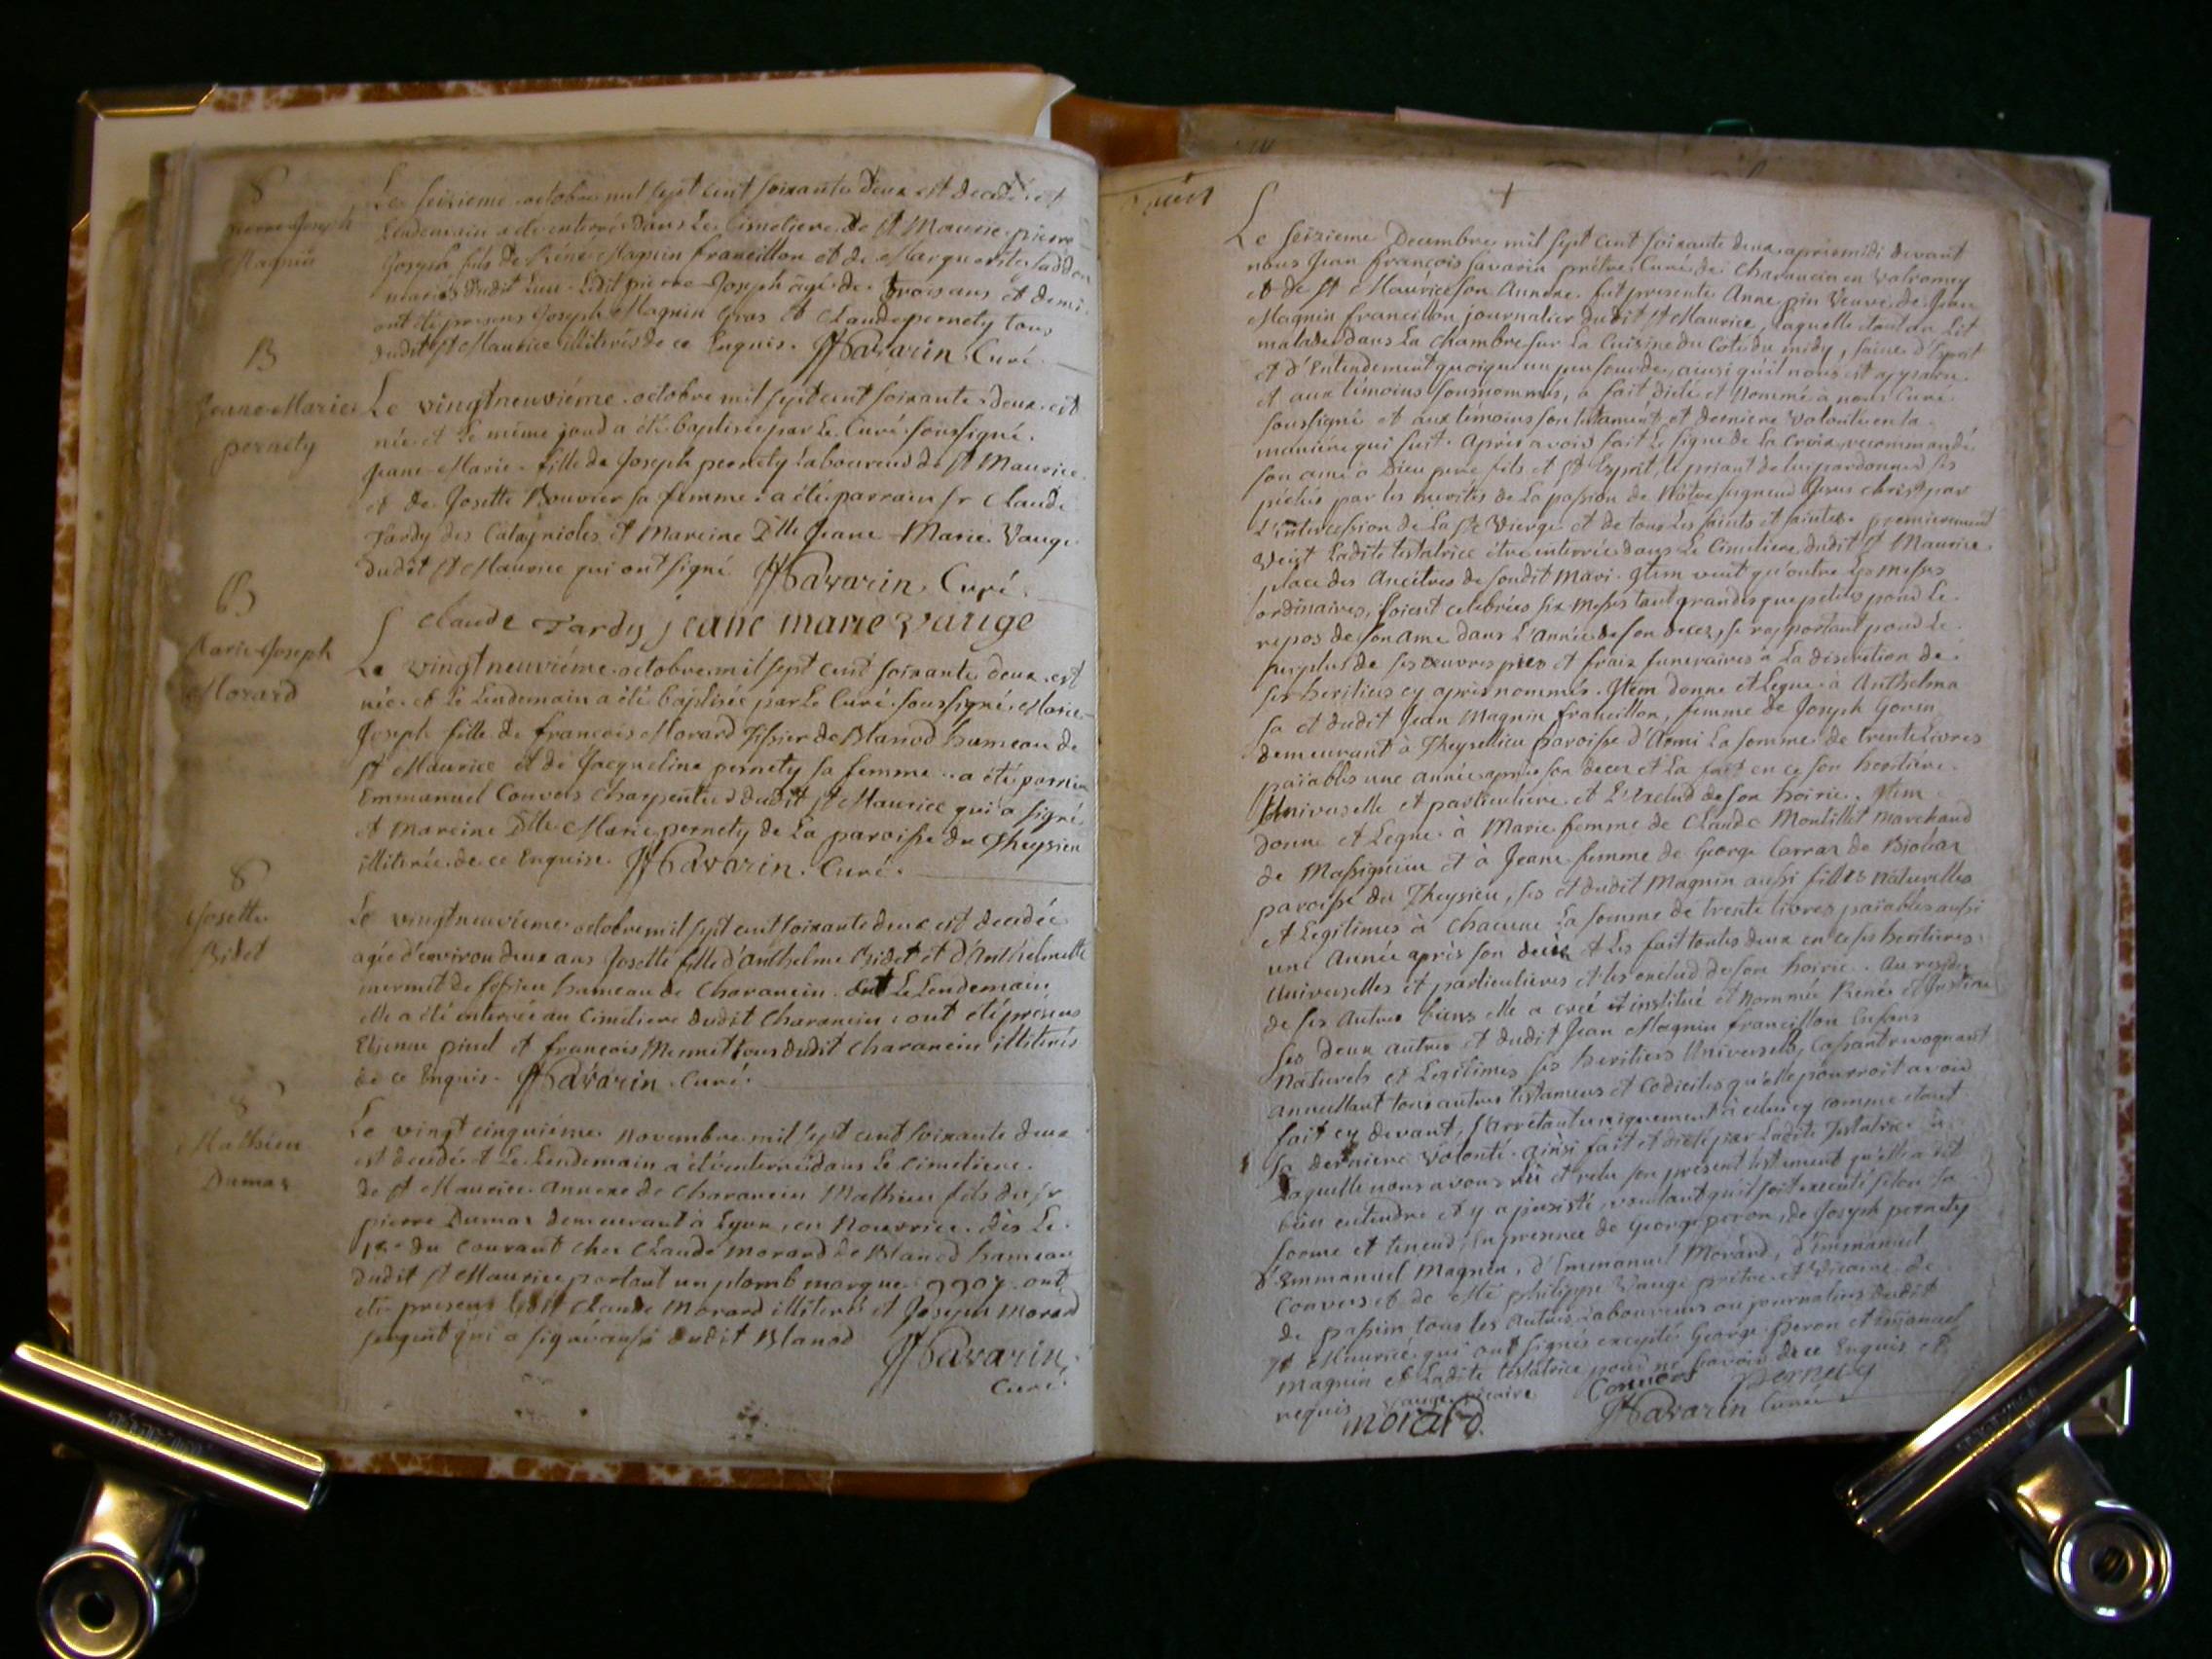 S
pierre Joseph
Magnin
Le seizieme octobre mil sept cent soixante deux est decedé et
Lendemain a été enterré dans Le Cimetiere de St Maurice pierre
Joseph fils de Réné Magnin francillon et de Marguerite
mariés dudit Lieu. Ledit pierre Joseph âgé de trois ans et demi
ont été presens Joseph Magnin Gros et Claude pernety tous
dudit St Maurice illiterés de ce Enquis. JfSavarin Curé
B
Jeane Marie
pernety
Le vingtneuviéme octobre mil sept cent soixante deux est
née et Le même jour a été baptisée par Le Curé soussigné
Jeane Marie fille de Joseph pernety Laboureur de St Maurice
et de Josette Bouvier sa femme. a été parrain Sr Claude
Tardy des Catagnioles et Mareine Dlle Jeane Marie Vauge
dudit St Maurice qui ont signé JfSavarin Curé
Claude Tardy jeane marie vauge
B
Marie Joseph
Morard
Le vingtneuviéme octobre mil sept cent soixante deux est
née et Le Lendemain a été baptisée par Le Curé soussigné Marie
Joseph fille de françois Morard Tissier de Blanod hameau de
St Maurice et de Jacqueline pernety sa femme a été parrin
Emmanuel Convers Charpentier dudit St Maurice qui a signé
et Mareine Dlle Marie pernety de La paroisse de Theysieu
illiterée de ce Enquise. JfSavarin Curé.
S
Josette
Bidet
Le vingtneuvieme octobre mil sept cent soixante deux est decedée
agée d'environ deux ans Josette fille d'anthelme Bidet et d'Anthelmette
mermet de hameau de Charancin. Et Le Lendemain
elle a été enterrée au Cimetiere dudit Charancin. ont été présens
Etienne pinel et françois Mermet tous dudit Charancin illiterés
de ce Enquis. JfSavarin Curé.
S
Mathieu
Dumas
Le vingt cinquiéme novembre mil sept cent soixante deux
est decedé et Le Lendemain a été enterré dans Le Cimetiere
de St Maurice Annexe de Charancin Mathieu fils du Sr
pierre Dumas demeurant à Lyon, en Nourrice dès Le
du Courant chez Claude Morard de Blanod hameau
dudit St Maurice portant un plomb marqué ont
été presens Ledit Claude Morard illiteré et Joseph Morard
sergent qui a signé aussi dudit Blanod JfSavarin
Curé
+
Le seizieme Decembre mil sept cent soixante deux apriemidi devant
nous Jean françois Savarin prétre Curé de Charancin en Valromey
et de St Maurice son Annexe fut presente Anne pin Veuve de Jean
Magnin francillon journalier dudit St Maurice, Laquelle étant au Lit
malade dans La chambre sur La Cuisine du Coté du midy, saine d'Esprit
et d'Entendement quoique un peu sourde, ainsi qu'il nous est apparu
et aux témoins sousnommés, a fait, dicté et Nommé à nous Curé
soussigné et aux témoins son testament et derniere Volonté en la
maniére qui suit. Aprés avoir fait Le signe de La Croix, recommandé
son ame à Dieu pere fils et St Esprit, le priant de lui pardonner ses
péchés par les merites de La passion de Nôtre seigneur Jesus Christ par
L'intercession de La Ste Vierge et de tous Les saints et saintes. premierement
Veut Ladite testatrice être enterrée dans Le Cimetiere dudit St Maurice
place des Ancêtres de sondit Mari. Item veut qu'outre Les Messes
ordinaires, soient celebrées six Messes tant grandes que petites pour Le
repos de son Ame dans L'année de son decez, se rapportant pour Le
surplus de ses œuvres pies et fraix funeraires à La discretion de
ses heritiers cy aprés nommés. Item donne et Legue à Anthelma
sa et dudit Jean Magnin francillon, femme de Joseph
demeurant à Theysellieu paroisse d'Armi La somme de trente Livres
païables une année aprés son decez et La fait en ce son heritiére
Universelle et particuliere et L'exclud de son hoirie. Item
donne et Legue à Marie femme de Claude Montillet marchand
de Massignieu et à Jeane femme de George Carrar de Biolaz
paroisse du Theysieu, ses et dudit Magnin aussi filles naturelles
et Legitimes à Chacune La somme de trente livres païables aussi
une Année aprés son decez et Les fait toutes deux en ce ses heritieres
Universelles et particulieres et les exclud de son hoirie. Au residu
de ses Autres biens elle a créé et institué et Nommée René et
ses deux autres et dudit Jean Magnin francillon Enfans
Naturels et Legitimes ses heritiers Universels, Cassant revoquant
annullant tous autres testamens et Codiciles qu'elle pourroit avoir
fait cy devant, s'arrétant uniquement à celui cy comme étant
sa derniere Volonté. ainsi fait et dicté par Ladite testatrice à
Laquelle nous avons lû et relu son présent testament qu'elle a dit
bien entendre et y a persisté, voulant qu'il soit executé selon sa
forme et teneur, En presence de George peron, de Joseph pernety
d'Emmanuel Magnin, d'Emmanuel Morard, d'Emmanuel
Convers et de Me philippe Vauge prêtre et Vicaire de
de passin tous les Autres Laboureurs ou journaliers dudit
St Maurice qui ont signés exceptés George peron et Emanuel
Magnin et Ladite testatrice pour ne sçavoir de ce Enquis et
requis Vauge vicaire Convers Pernety
morard JfSavarin Curé